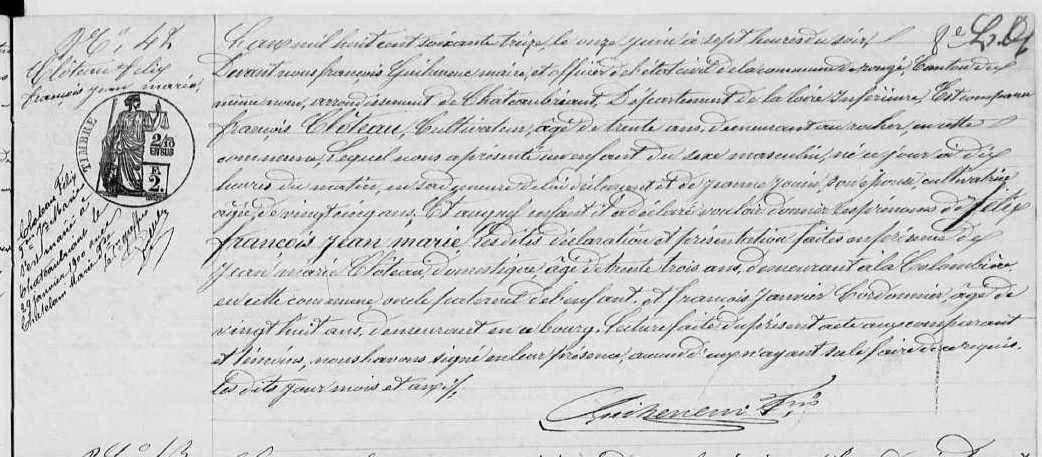 N° 42
Clôteau Félix
françois jean marie
TIMBRE
2/10
EN SUS
2.
Clateau Félix
s'est marié à
Chateaubriant le
29 janvier 1900 avec
Chatelain Marie
L'an mil huit cent soixante treize, le onze juin à sept heures du soir,
Devant nous françois Guiheneuc maire, et officier de l'état civil de la commune de rougé, Canton du
même nom, arrondissement de Châteaubriant, Département de la loire Inférieure, Est comparu
françois Clôteau, Cultivateur, âgé de trente ans, demeurant au rocher, en cette
commune, Lequel nous a présenté un enfant du sexe masculin, né ce jour à dix
heures du matin, en sa demeure de lui déclarant et de jeanne jouin, son épouse, cultivatrice
âgée de vingt cinq ans, Et auquel enfant il a déclaré vouloir donner les prénoms de félix
françois jean marie Lesdites déclaration et présentation faites en présence de
jean marie Clôteau, domestique, âgé de trente trois ans, demeurant à la Colombière
en cette commune oncle paternel de l'enfant et françois janvier Cordonnier, âgé de
vingt huit ans, demeurant en ce bourg, Lecture faite du présent acte aux comparant
et témoins, nous l'avons signé en leur présence, aucun d'eux n'ayant su le faire de ce requis.
Les dits jour mois et an
Guiheneuc Fois